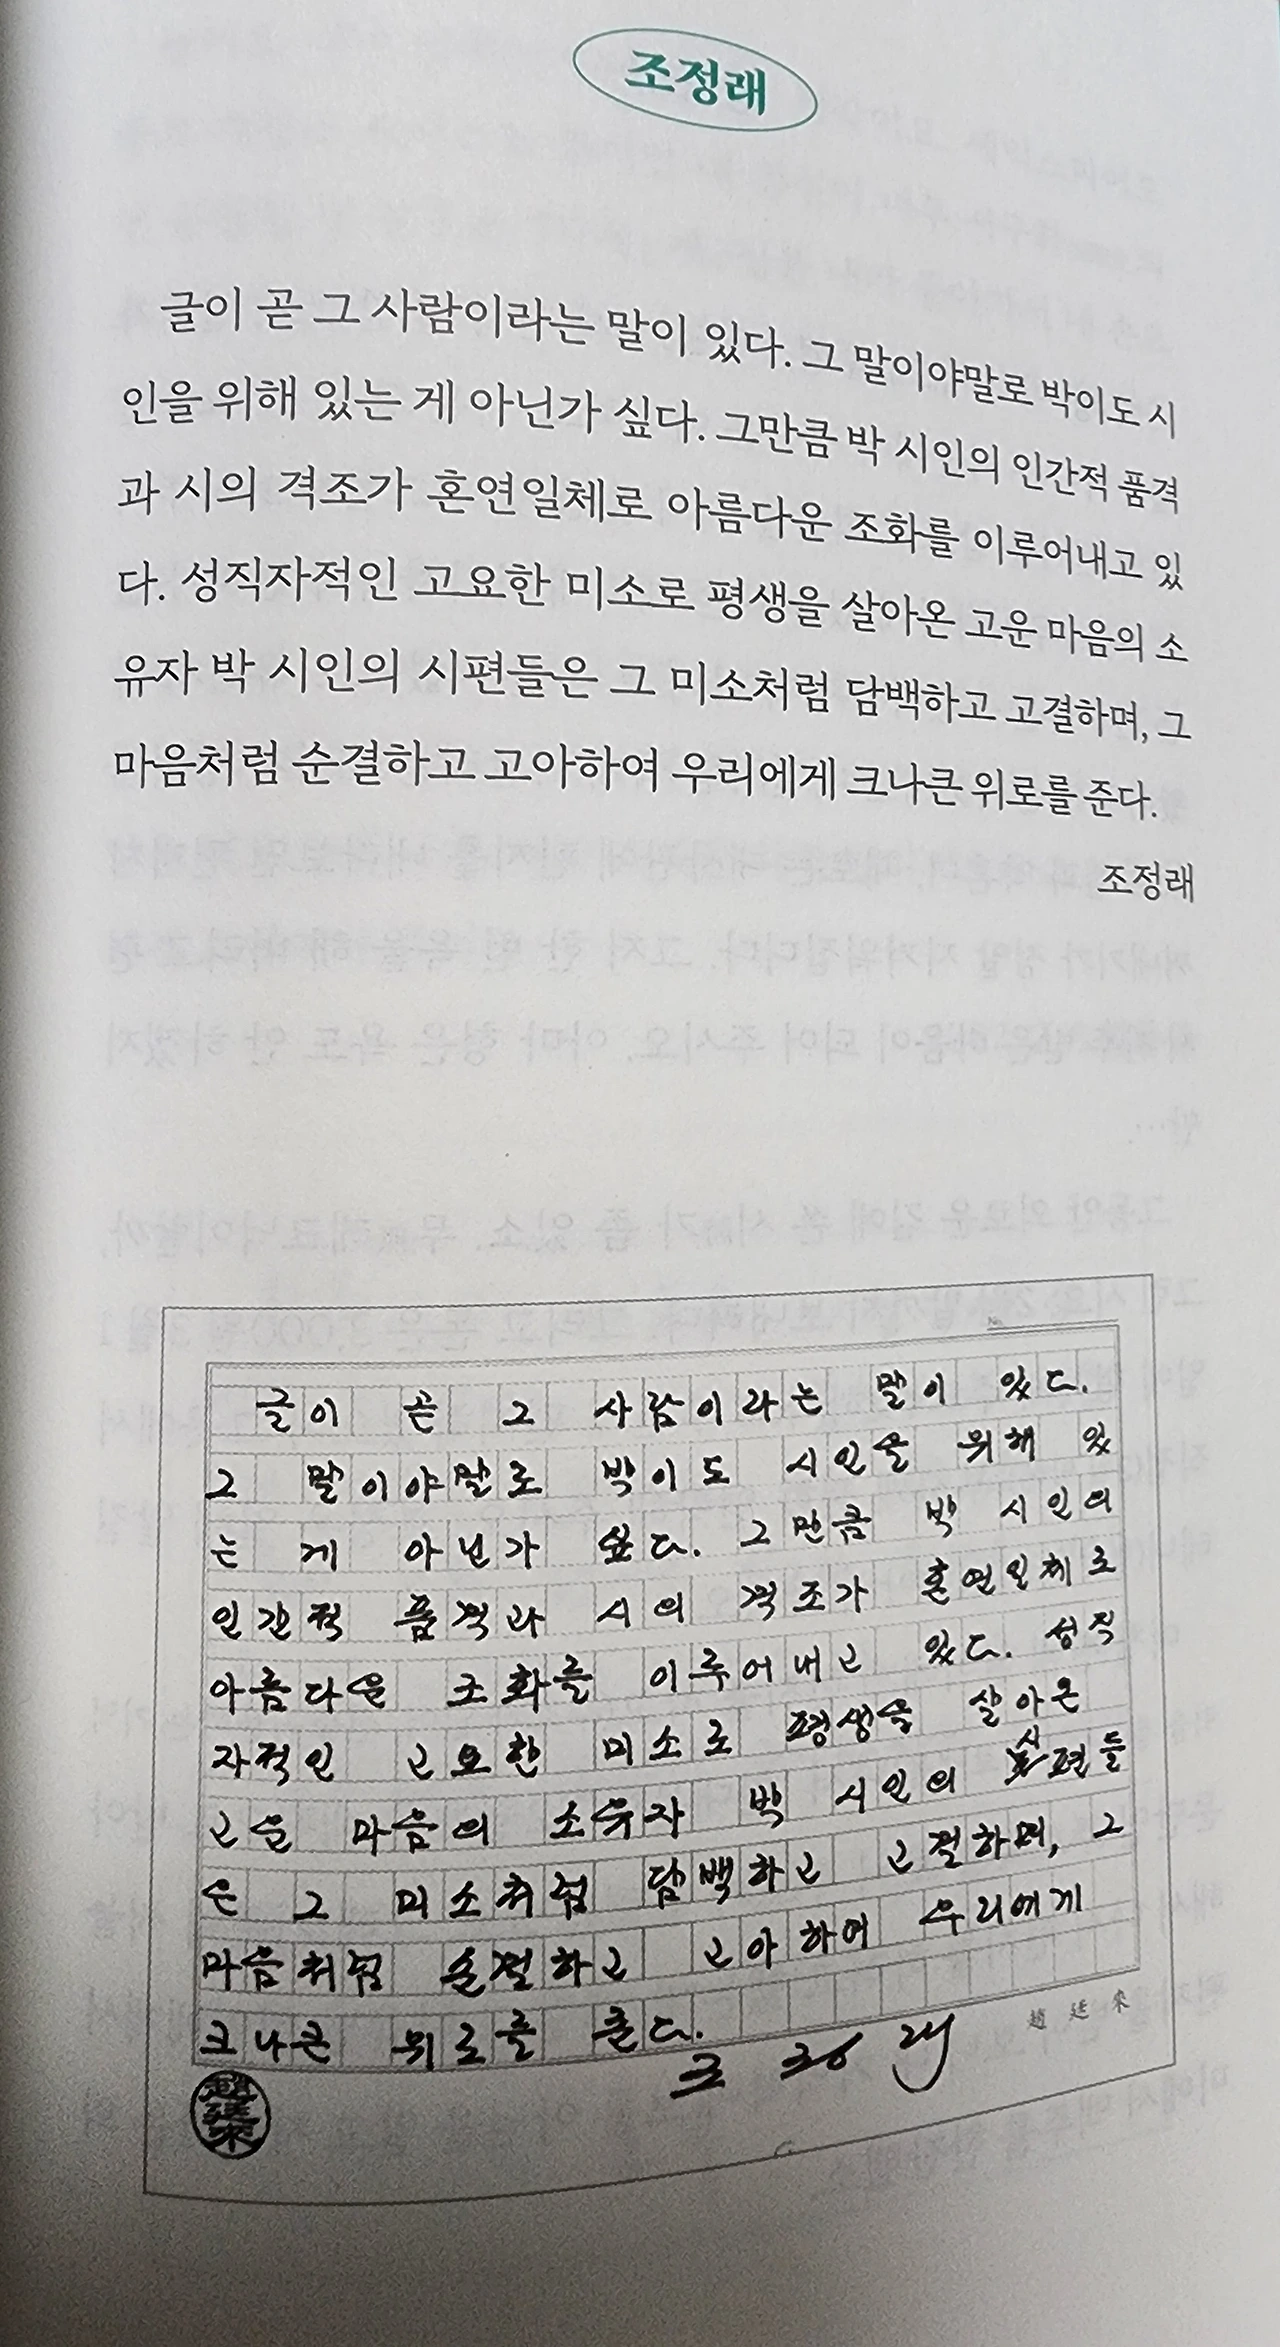 조정래
글이 곧 그 사람이라는 말이 있다. 그 말이야말로 박이도 시
인을 위해 있는 게 아닌가 싶다. 그만큼 박 시인의 인간적 품격
과 시의 격조가 혼연일체로 아름다운 조화를 이루어내고 있
다. 성직자적인 고요한 미소로 평생을 살아온 고운 마음의 소
유자 박 시인의 시편들은 그 미소처럼 담백하고 고결하며, 그
마음처럼 순결하고 고아하여 우리에게 크나큰 위로를 준다.
조정래
No.
글이 곧 그 사람이라는 말이 있다.
그 말이야말로 박이도 시인을 위해 있
는 게 아닌가 싶다. 그만큼 박 시인의
인간적 품격과 시의 격조가 혼연일체로
아름다운 조화를 이루어내고 있다. 성직
자적인 고요한 미소로 평생을 살아온
고운 마음의 소유자 박 시인의 시편들
은 그 미소처럼 담백하고 고결하며, 그
마음처럼 순결하고 고아하여 우리에게
크나큰 위로를 준다.
조정래
趙廷來
趙廷來